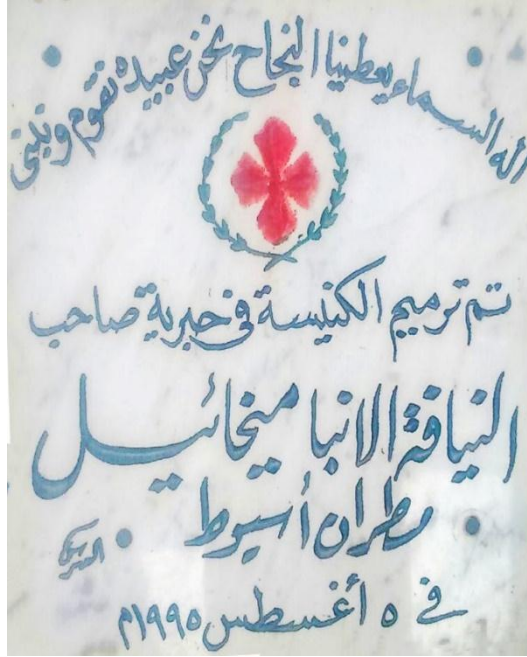 اله السماء يعطينا النجاح نحن عبيده نقوم ونبنى
تم ترميم الكنيسة فى حبرية صاحب
النيافة الانبا ميخائيل
مطران أسيوط
فى ٥ أغسطس ١٩٩٥م